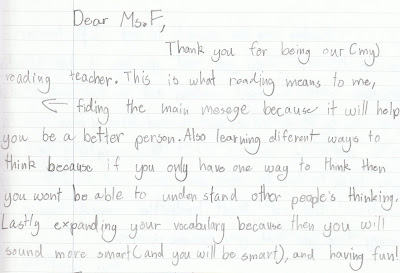 Dear Ms. F,
Thank you for being our (my)
reading teacher. This is what reading means to me,
← fiding the main mesage because it will help
you be a better person. Also learning diferent ways to
think because if you only have one way to think then
you wont be able to understand other people's thinking.
Lastly expanding your vocabulary because then you will
sound more smart (and you will be smart), and having fun!